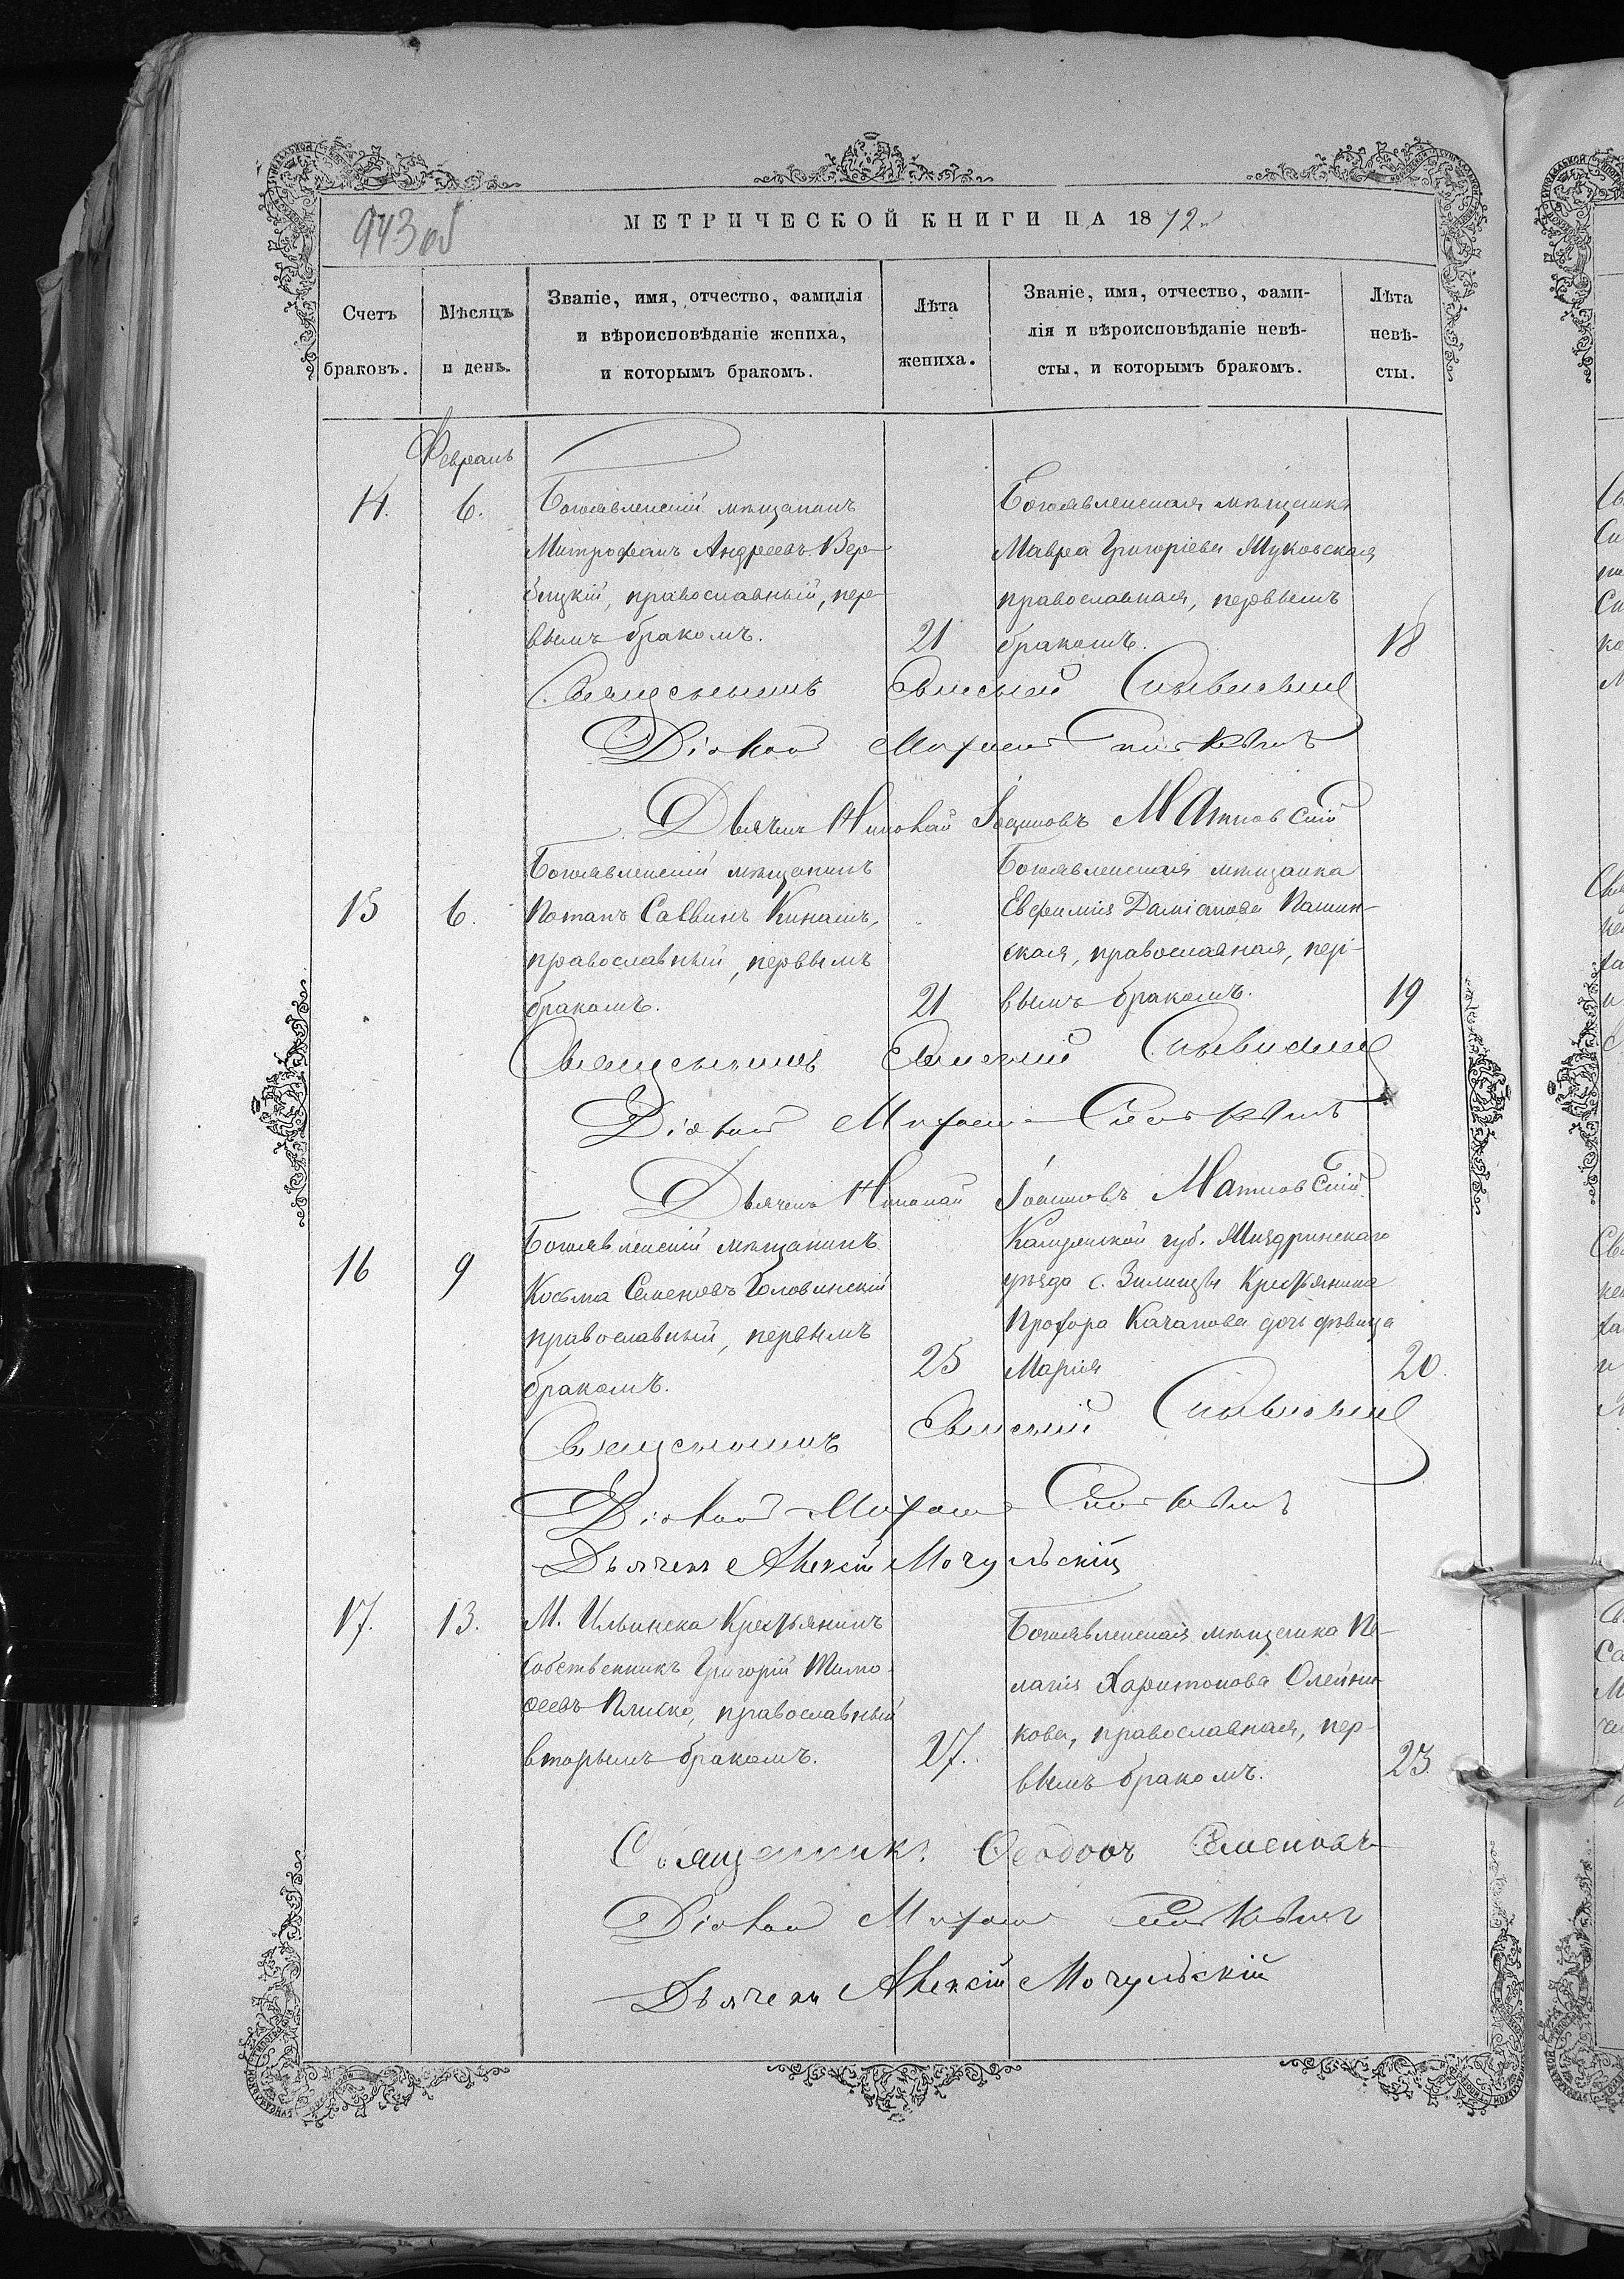 943 об
МЕТРИЧЕСКОЙ КНИГИ НА 1872
Счетъ браковъ.
Мѣсяцъ и день.
Званіе, имя, отчество, фамилія
и вѣроисповѣданіе жениха,
и которымъ бракомъ.
Лѣта жениха.
Званіе, имя, отчество, фами-
лія и вѣроисповѣданіе невѣ-
сты, и которымъ бракомъ.
Лѣта невѣ-
сты.
Февраль
14. 6.
Богоявленскій мѣщанинъ
Митрофанъ Андреевъ Вер-
бицкій, православный, пер-
вымъ бракомъ.
21
Богоявленская мѣщанка
Мавра Григоріева Жуковская,
православная, первымъ
бракомъ.
18
Священникъ
Діаконъ Михаилъ
Дьячекъ Николай Іоанновъ
15 6.
Богоявленскій мѣщанинъ
Потапъ Саввинъ Кинашъ,
православный, первымъ
бракомъ.
21
Богоявленская мѣщанка
Евфимія Даміанова Пашин-
ская, православная, пер-
вымъ бракомъ.
19
Священникъ
Діаконъ Михаилъ
Дьячекъ Николай Іоанновъ
16 9
Богоявленскій мѣщанинъ
Косьма Семеновъ Головинскій
православный, первымъ
бракомъ.
25
Калужской губ. Жиздринскаго
уѣзда с. Крестьянина
Прохора Качанова дочь дѣвица
Марія
20.
Священникъ
Діаконъ Михаилъ
Дьячекъ Алексій Мочульскій
17. 13.
М. Ильинска Крестьянинъ
Собственникъ Григорій Тимо-
ѳеевъ Плиско, православный
вторымъ бракомъ.
27.
Богоявленская мѣщанка Пе-
лагія Харитонова Олейни-
кова, православная, пер-
вымъ бракомъ.
23.
Священникъ Ѳеодоръ Семеновъ
Діаконъ Михаилъ
Дьячекъ Алексій Мочульскій